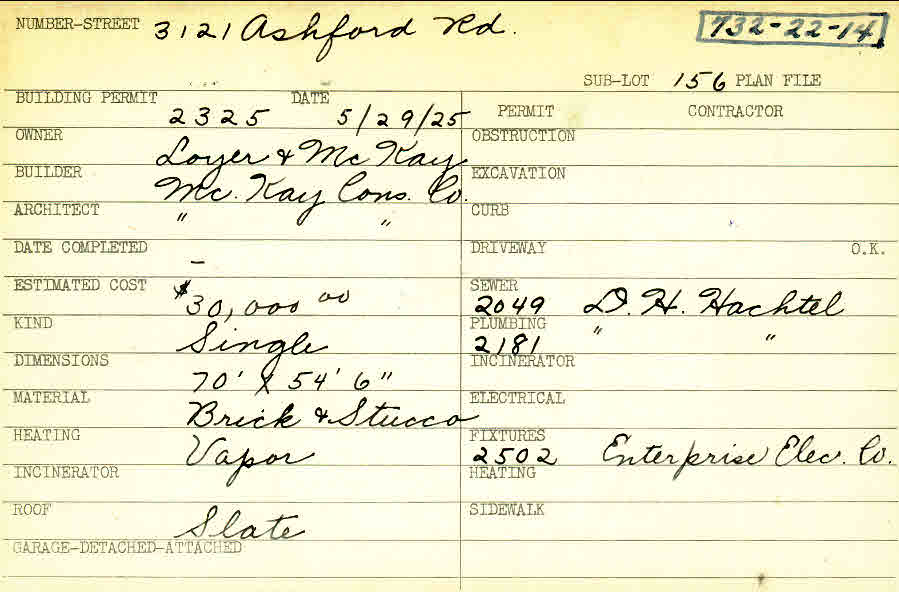 NUMBER-STREET 3121 Ashford Rd. 732-22-14
SUB-LOT 156 PLAN FILE
BUILDING PERMIT DATE PERMIT CONTRACTOR
2325 5/29/25
OWNER Loyer & McKay OBSTRUCTION
BUILDER Mc. Kay Cons. Co. EXCAVATION
ARCHITECT " " CURB
DATE COMPLETED – DRIVEWAY O.K.
ESTIMATED COST $30,000 00 SEWER
2049 D. H. Hachtel
KIND Single PLUMBING
2181 " "
DIMENSIONS 70' X 54' 6" INCINERATOR
MATERIAL Brick & Stucco ELECTRICAL
HEATING Vapor FIXTURES
2502 Enterprise Elec. Co.
INCINERATOR HEATING
ROOF Slate SIDEWALK
GARAGE-DETACHED-ATTACHED